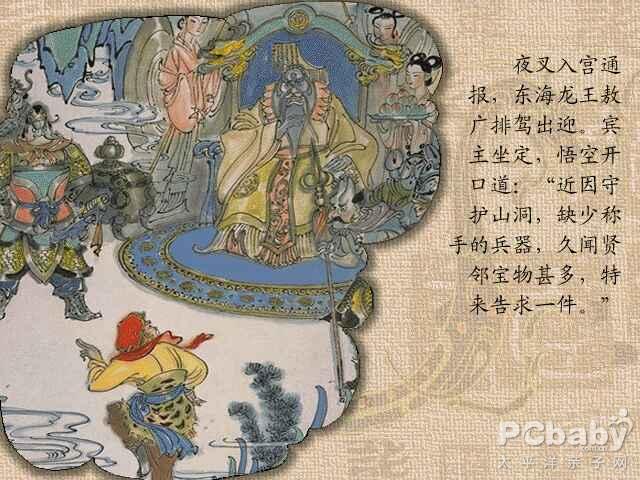 夜叉入宫通
报，东海龙王敖
广排驾出迎。宾
主坐定，悟空开
口道：“近因守
护山洞，缺少称
手的兵器，久闻贤
邻宝物甚多，特
来告求一件。”
PCbaby
太平洋亲子网